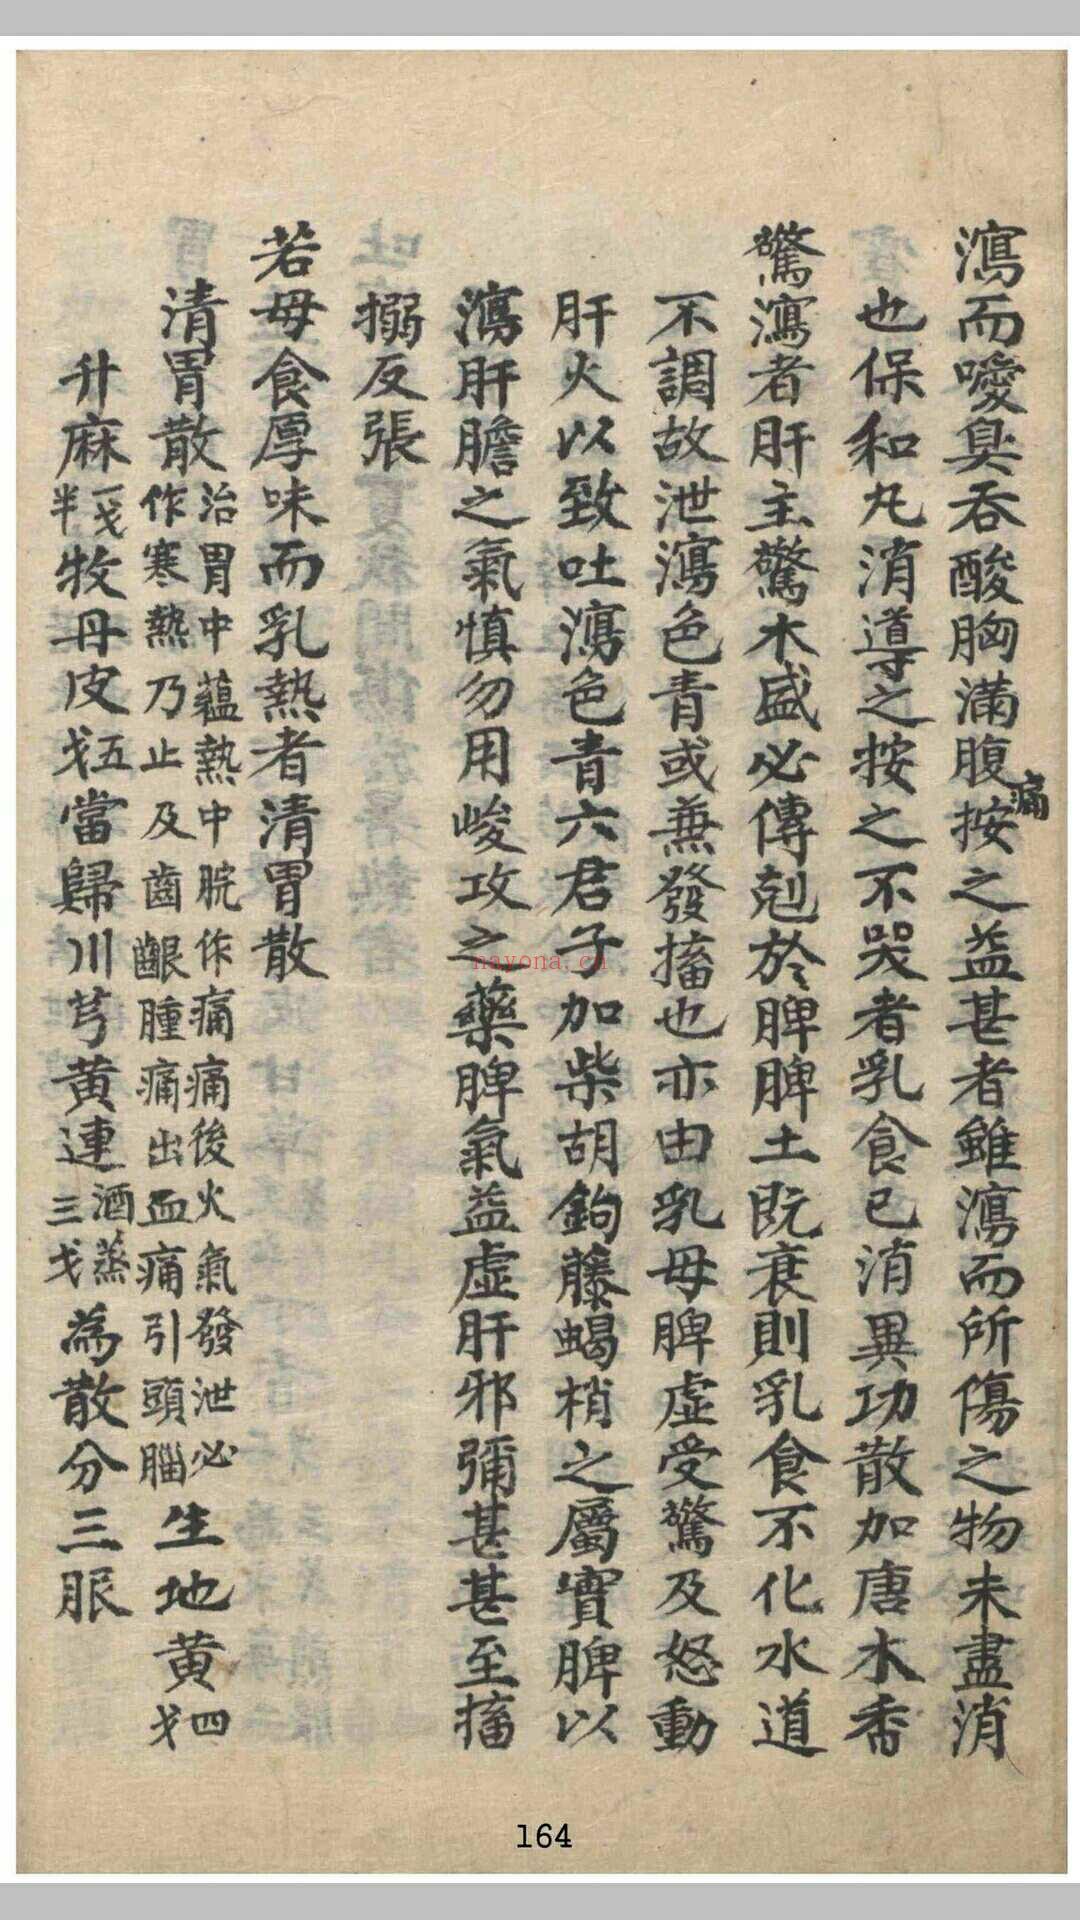 瀉而噯臭吞酸胸滿腹痛按之益甚者雖瀉而所傷之物未盡消
也保和丸消導之按之不哭者乳食已消異功散加唐木香
驚瀉者肝主驚木盛必傳剋於脾脾土既衰則乳食不化水道
不調故泄瀉色青或兼發搐也亦由乳母脾虛受驚及怒動
肝火以致吐瀉色青六君子加柴胡鉤藤蝎梢之屬實脾以
瀉肝膽之氣慎勿用峻攻之藥脾氣益虛肝邪彌甚甚至搐
搦反張
若母食厚味而乳熱者清胃散
清胃散治胃中蘊熱中脘作痛痛後火氣發泄必
作寒熱乃止及齒齦腫痛出血痛引頭腦生地黃四戈
升麻一戈半牧丹皮五戈當歸川芎黃連酒蒸三戈為散分三服
nayona.cn
164